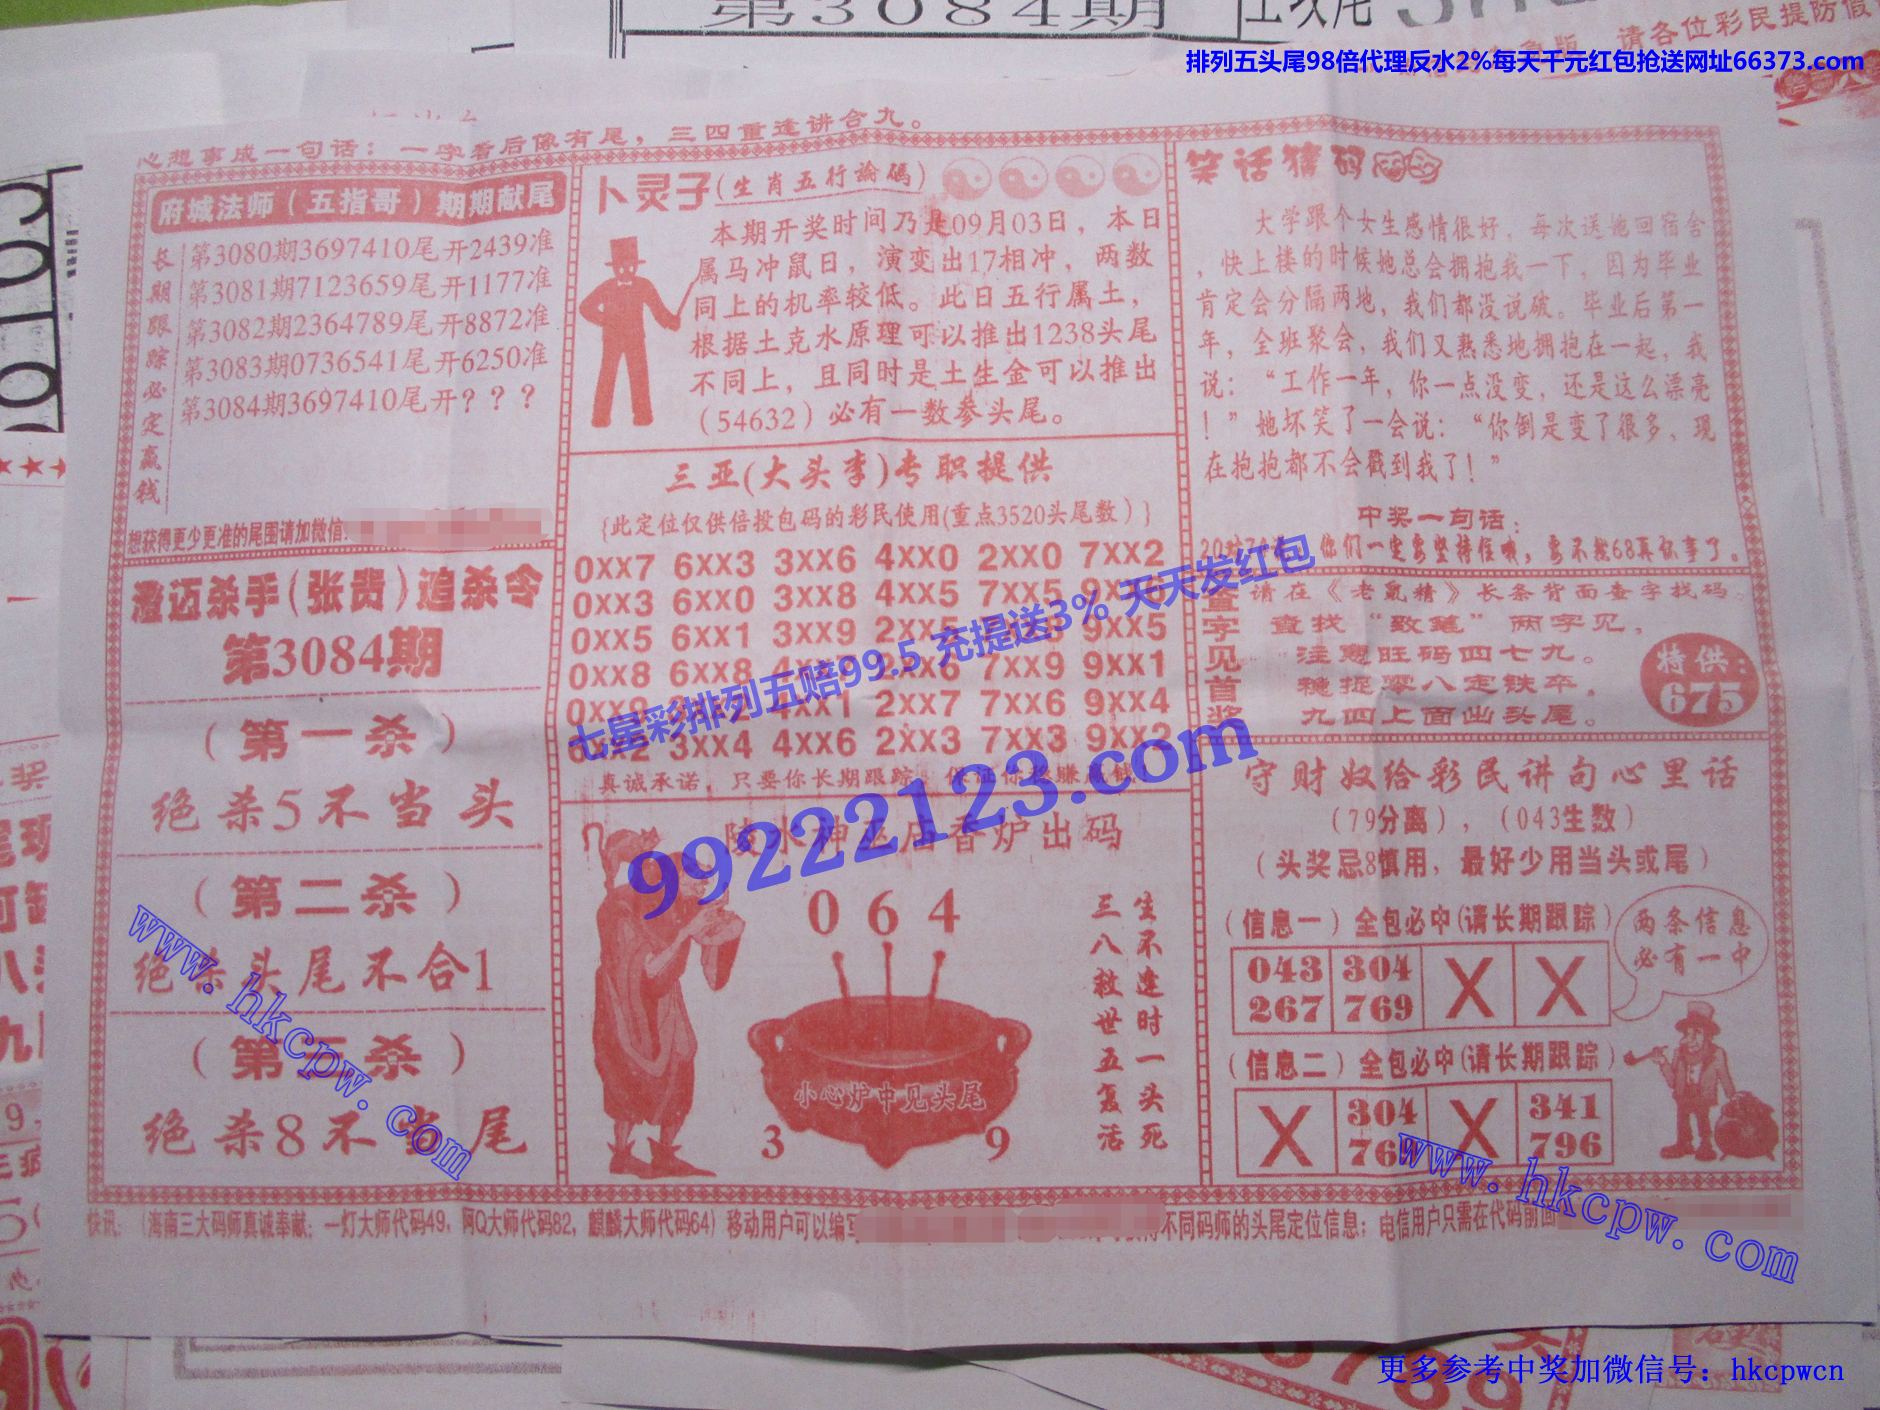 第3084期
请各位彩民提防假
排列五头尾98倍代理反水2%每天千元红包抢送网址66373.com
心想事成一句话：一字看后像有尾，三四重逢讲合九。
府城法师（五指哥）期期献尾
长期跟踪必定赢钱
第3080期3697410尾开2439准
第3081期7123659尾开1177准
第3082期2364789尾开8872准
第3083期0736541尾开6250准
第3084期3697410尾开？？？
想获得更少更准的尾围请加微信:
澄迈杀手(张贵)追杀令
第3084期
（第一杀）
绝杀5不当头
（第二杀）
绝杀头尾不合1
（第三杀）
绝杀8不当尾
卜灵子(生肖五行論碼)
本期开奖时间乃是09月03日，本日
属马冲鼠日，演变出17相冲，两数
同上的机率较低。此日五行属土，
根据土克水原理可以推出1238头尾
不同上，且同时是土生金可以推出
（54632）必有一数参头尾。
三亚(大头李)专职提供
{此定位仅供倍投包码的彩民使用(重点3520头尾数）}
0XX7 6XX3 3XX6 4XX0 2XX0 7XX2
0XX3 6XX0 3XX8 4XX5 7XX5 9XX6
0XX5 6XX1 3XX9 2XX 9XX5
0XX8 6XX8 2XX6 7XX9 9XX1
0XX9 4XX1 2XX7 7XX6 9XX4
6XX2 3XX4 4XX6 2XX3 7XX3 9XX2
真诚承诺，只要你长期跟踪，保证你
七星彩排列五赔99.5 充提送3% 天天发红包
99222123.com
陵水神巫庙香炉出码
0 6 4
小心炉中见头尾
3 9
生不逢时一头死
三八救世五复活
笑话猜码
大学跟个女生感情很好，每次送她回宿舍
，快上楼的时候她总会拥抱我一下，因为毕业
肯定会分隔两地，我们都没说破。毕业后第一
年，全班聚会，我们又熟悉地拥抱在一起，我
说：“工作一年，你一点没变，还是这么漂亮
！”她坏笑了一会说：“你倒是变了很多，现
在抱抱都不会戳到我了！”
中奖一句话：
你们一定要坚持住哦，要不然68真坏事了。
查字见首奖
请在《老鼠精》长条背面查字找码。
查找“致笔”两字见，
注意旺码四七九。
稳捉零八定铁卒，
九四上面出头尾。
特供：
675
守财奴给彩民讲句心里话
（79分离），（043生数）
（头奖忌8慎用，最好少用当头或尾）
（信息一）全包必中(请长期跟踪)
043 304 X X
267 769
两条信息
必有一中
（信息二）全包必中(请长期跟踪)
X 304 X 341
76 796
快讯：（海南三大码师真诚奉献：一灯大师代码49，阿Q大师代码82，麒麟大师代码64）移动用户可以编写
不同码师的头尾定位信息；电信用户只需在代码前面
www.hkcpw.com
www.hkcpw.com
更多参考中奖加微信号：hkcpwcn